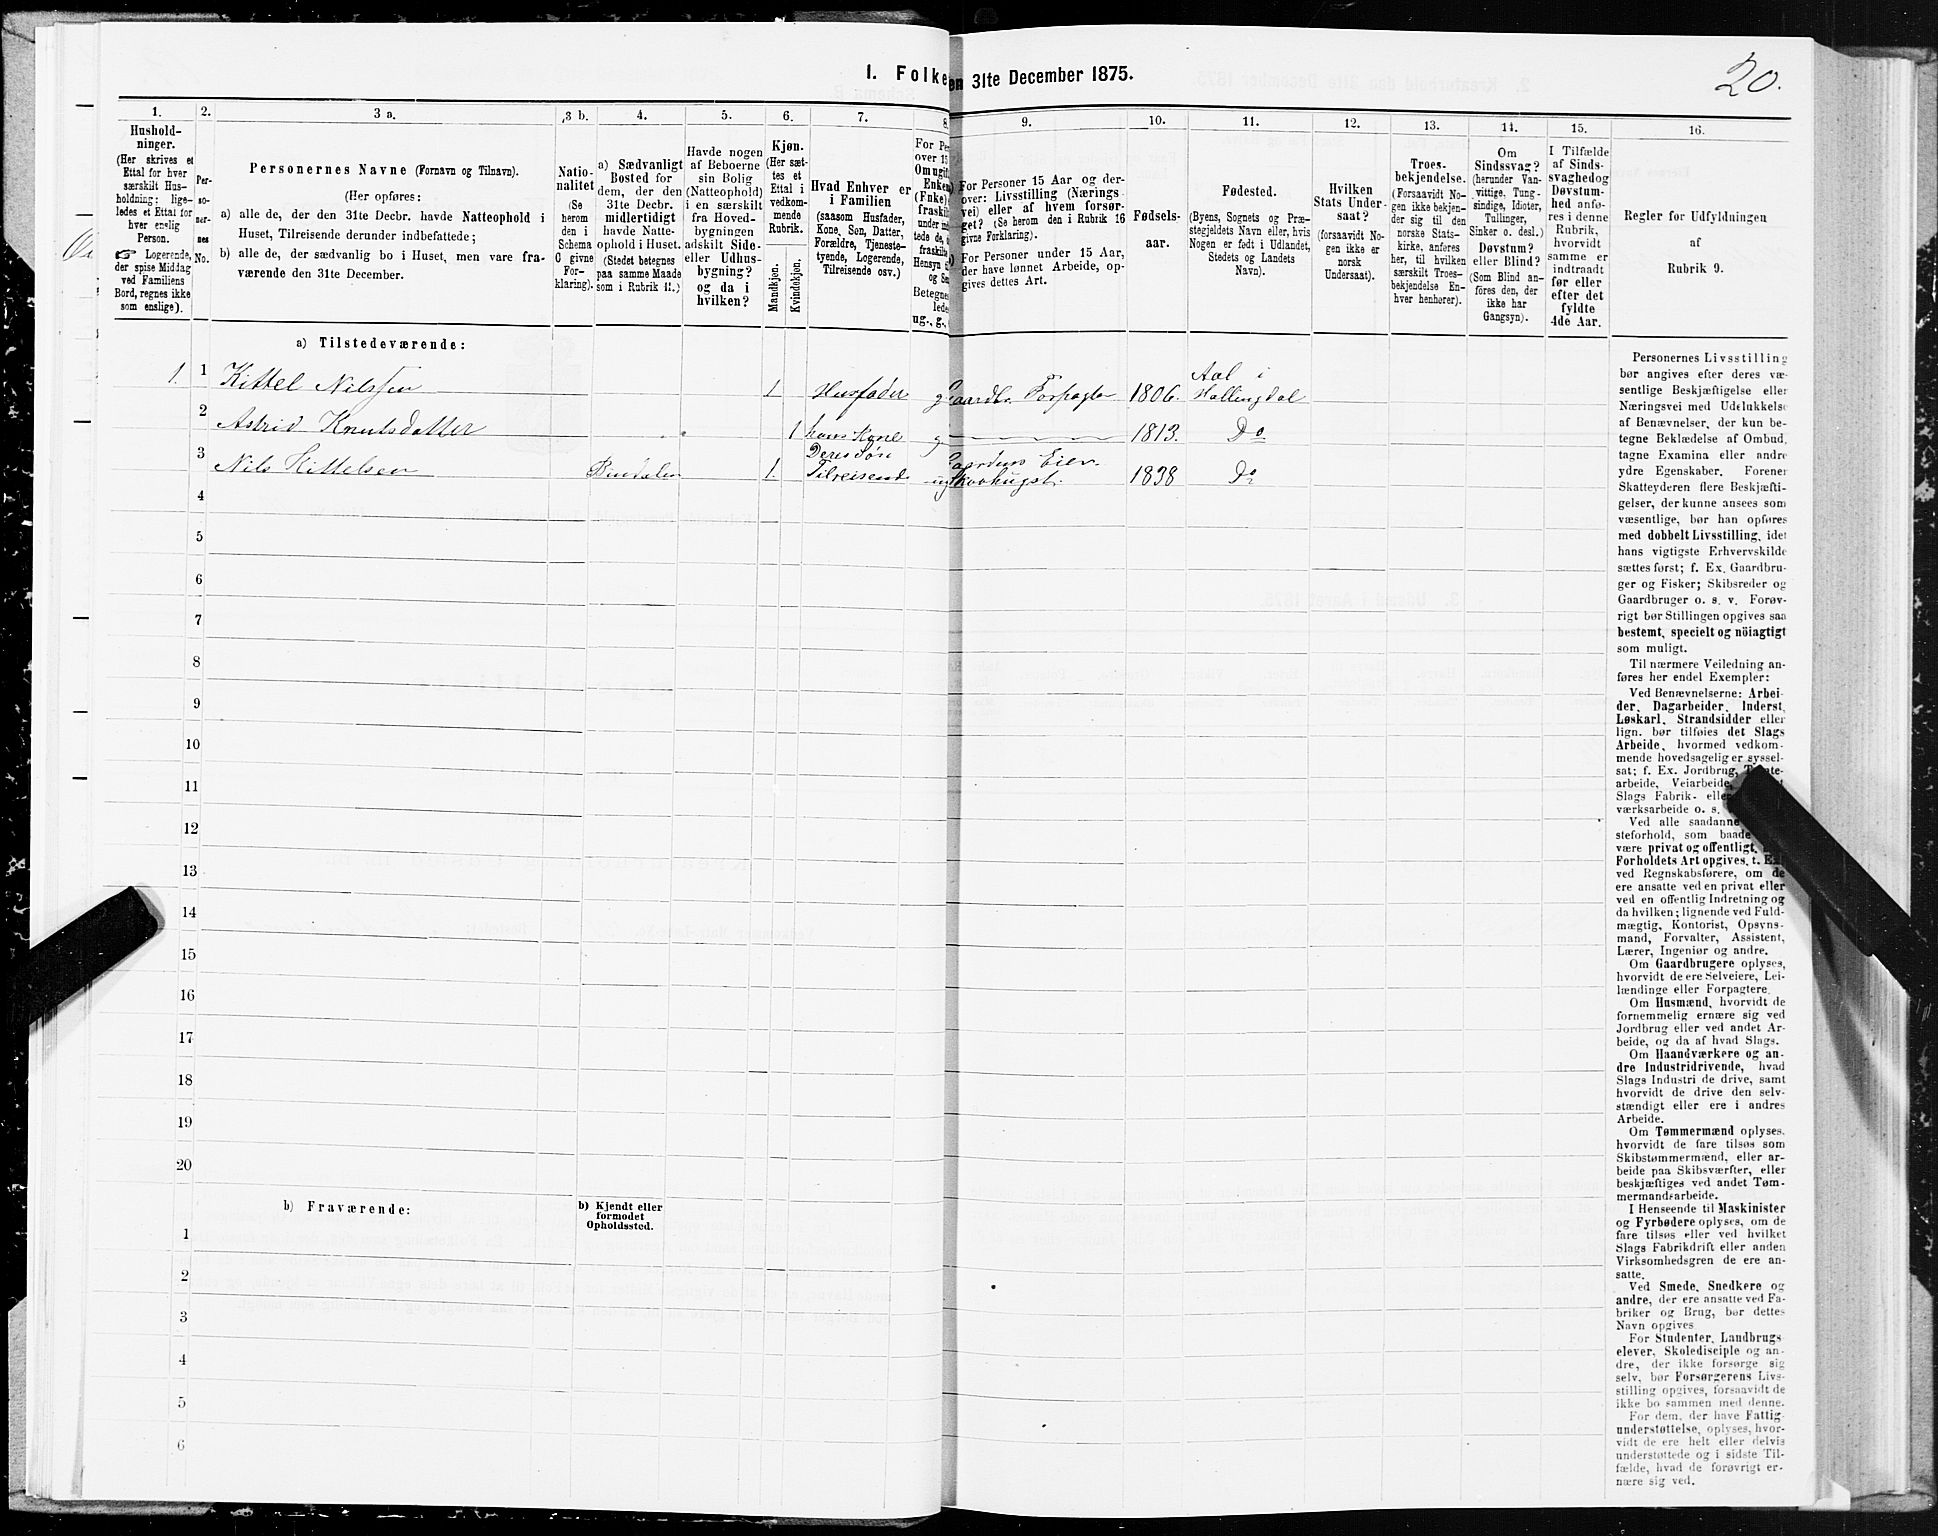 1. Folke en 31te December 1875.
20.
1.
2.
3 a.
3 b.
4.
5.
6.
7.
8.
9.
10.
11.
12.
13.
14.
15.
16.
Hushold-
ninger.
(Her skrives et
Ettal for hver
særskilt Hus-
holdning; lige-
ledes et Ettal for
hver enslig
Person.
☞ Logerende,
der spise Middag
ved Familiens
Bord, regnes ikke
som enslige).
Per-
so-
ner-
nes
No.
Personernes Navne (Fornavn og Tilnavn).
(Her opføres:
a) alle de, der den 31te Decbr. havde Natteophold i
Huset, Tilreisende derunder indbefattede;
b) alle de, der sædvanlig bo i Huset, men vare fra-
værende den 31te December.
Natio-
nalitet
(Se
herom
den i
Schema
C givne
For-
klaring).
a) Sædvanligt
Bosted for
dem, der den
31te Decbr.
midlertidigt
havde Natte-
ophold i Huset.
(Stedet betegnes
paa samme Maade
som i Rubrik 11.)
Havde nogen
af Beboerne
sin Bolig
(Natteophold)
i en særskilt
fra Hoved-
bygningen
adskilt Side-
eller Udhus-
bygning?
og da i
hvilken?
Kjøn.
(Her sæt-
tes et
Ettal i
vedkom-
mende
Rubrik.
Mandkjøn.
Kvindekjøn.
Hvad Enhver er
i Familien
(saasom Husfader,
Kone, Søn, Datter,
Forældre, Tjeneste-
tyende, Logerende,
Tilreisende osv.)
For Pe
over 15
Om ugift
Enken
(Fnke),
fraskilt
under me
tede de, i
fraskilte
Hensyn t
og Se
Betegne
lede
ug., g.,
For Personer 15 Aar og der-
over: Livsstilling (Nærings-
vei) eller af hvem forsør-
get? (Se herom den i Rubrik 16
givne Forklaring).
For Personer under 15 Aar,
der have lønnet Arbeide, op-
gives dettes Art.
Fødsels-
aar.
Fødested.
(Byens, Sognets og Præ-
stegjeldets Navn eller, hvis
Nogen er født i Udlandet,
Stedets og Landets
Navn).
Hvilken
Stats Under-
saat?
(forsaavidt No-
gen ikke er
norsk
Undersaat).
Troes-
bekjendelse.
(Forsaavidt No-
gen ikke bekjen-
der sig til den
norske Stats-
kirke, anføres
her, til hvilken
særskilt Troes-
bekjendelse En-
hver henhører).
Om
Sindssvag?
(herunder Van-
vittige, Tung-
sindige, Idioter,
Tullinger,
Sinker o. desl.)
Døvstum?
eller Blind?
(Som Blind an-
føres den, der
ikke har
Gangsyn).
I Tilfælde
af Sinds-
svaghed og
Døvstum-
hed anfø-
res i denne
Rubrik,
hvorvidt
samme er
indtraadt
før eller
efter det
fyldte
4de Aar.
Regler for Udfyldningen
af
Rubrik 9.
a) Tilstedeværende:
1. 1 Kittel Nilssen 1 Husfader g Gaardbr. Forpagter 1806. Aal i
Hallingdal
2 Astrid Knutsdatter 1 hans Kone g 1813. Do
3 Nils Kittelsen Bindalen 1. Deres Søn
Tilreisende ug Gaardens Eier
1838 Do
4
5
6
7
8
9
10
11
12
13
14
15
16
17
18
19
20
b) Fraværende:
b) Kjendt eller
formodet
Opholdssted.
1
2
3
4
5
6
Personernes Livsstilling
bør angives efter deres væ-
sentlige Beskjæftigelse eller
Næringsvei med Udelukkelse
af Benævnelser, der kun be-
tegne Beklædelse af Ombud,
tagne Examina eller andre
ydre Egenskaber. Forener
Skatteyderen flere Beskjæfti-
gelser, der kunne ansees som
væsentlige, bør han opføres
med dobbelt Livsstilling, idet
hans vigtigste Erhvervskilde
sættes først; f. Ex. Gaardbru-
ger og Fisker; Skibsreder og
Gaardbruger o. s. v. Forøv-
rigt bør Stillingen opgives saa
bestemt, specielt og nöiagtigt
som muligt.
Til nærmere Veiledning an-
føres her endel Exempler:
Ved Benævnelserne: Arbei-
der, Dagarbeider, Inderst,
Løskarl, Strandsidder eller
lign. bør tilføies det Slags
Arbeide, hvormed vedkom-
mende hovedsagelig er syssel-
sat; f. Ex. Jordbrug,
arbeide, Veiarbeide,
Slags Fabrik- elle
værksarbeide o. s.
Ved alle saadanne
steforhold, som baade
være privat og offentlig,
Forholdets Art opgives, t. Ex.
ved Regnskabsførere, om de
ere ansatte ved en privat eller
ved en offentlig Indretning og
da hvilken; lignende ved Fuld-
mægtig, Kontorist, Opsyns-
mand, Forvalter, Assistent,
Lærer, Ingeniør og andre.
Om Gaardbrugere oplyses,
hvorvidt de ere Selveiere, Lei-
lændinge eller Forpagtere.
Om Husmænd, hvorvidt de
fornemmelig ernære sig ved
Jordbrug eller ved andet Ar-
beide, og da af hvad Slags.
Om Haandværkere og an-
dre Industridrivende, hvad
Slags Industri de drive, samt
hvorvidt de drive den selv-
stændigt eller ere i andres
Arbeide.
Om Tømmermænd oplyses,
hvorvidt de fare tilsøs som
Skibstømmermænd, eller ar-
beide paa Skibsværfter, eller
beskjæftiges ved andet Tøm-
mermandsarbeide.
I Henseende til Maskinister
og Fyrbødere oplyses, om de
fare tilsøs eller ved hvilket
Slags Fabrikdrift eller anden
Virksomhedsgren de ere an-
satte.
Ved Smede, Snedkere og
andre, der ere ansatte ved Fa-
briker og Brug, bør dettes
Navn opgives
For Studenter, Landbrugs
elever, Skoledisciple og an-
dre, der ikke forsørge sig
selv, bør Forsørgerens Livs-
stilling opgives, forsaavidt de
ikke bo sammen med denne.
For dem, der have Fattig
understøttelse, oplyses, hvor-
vidt de ere helt eller delvis
understøttede og i sidste Til-
fælde, hvad de forøvrigt er-
nære sig ved.